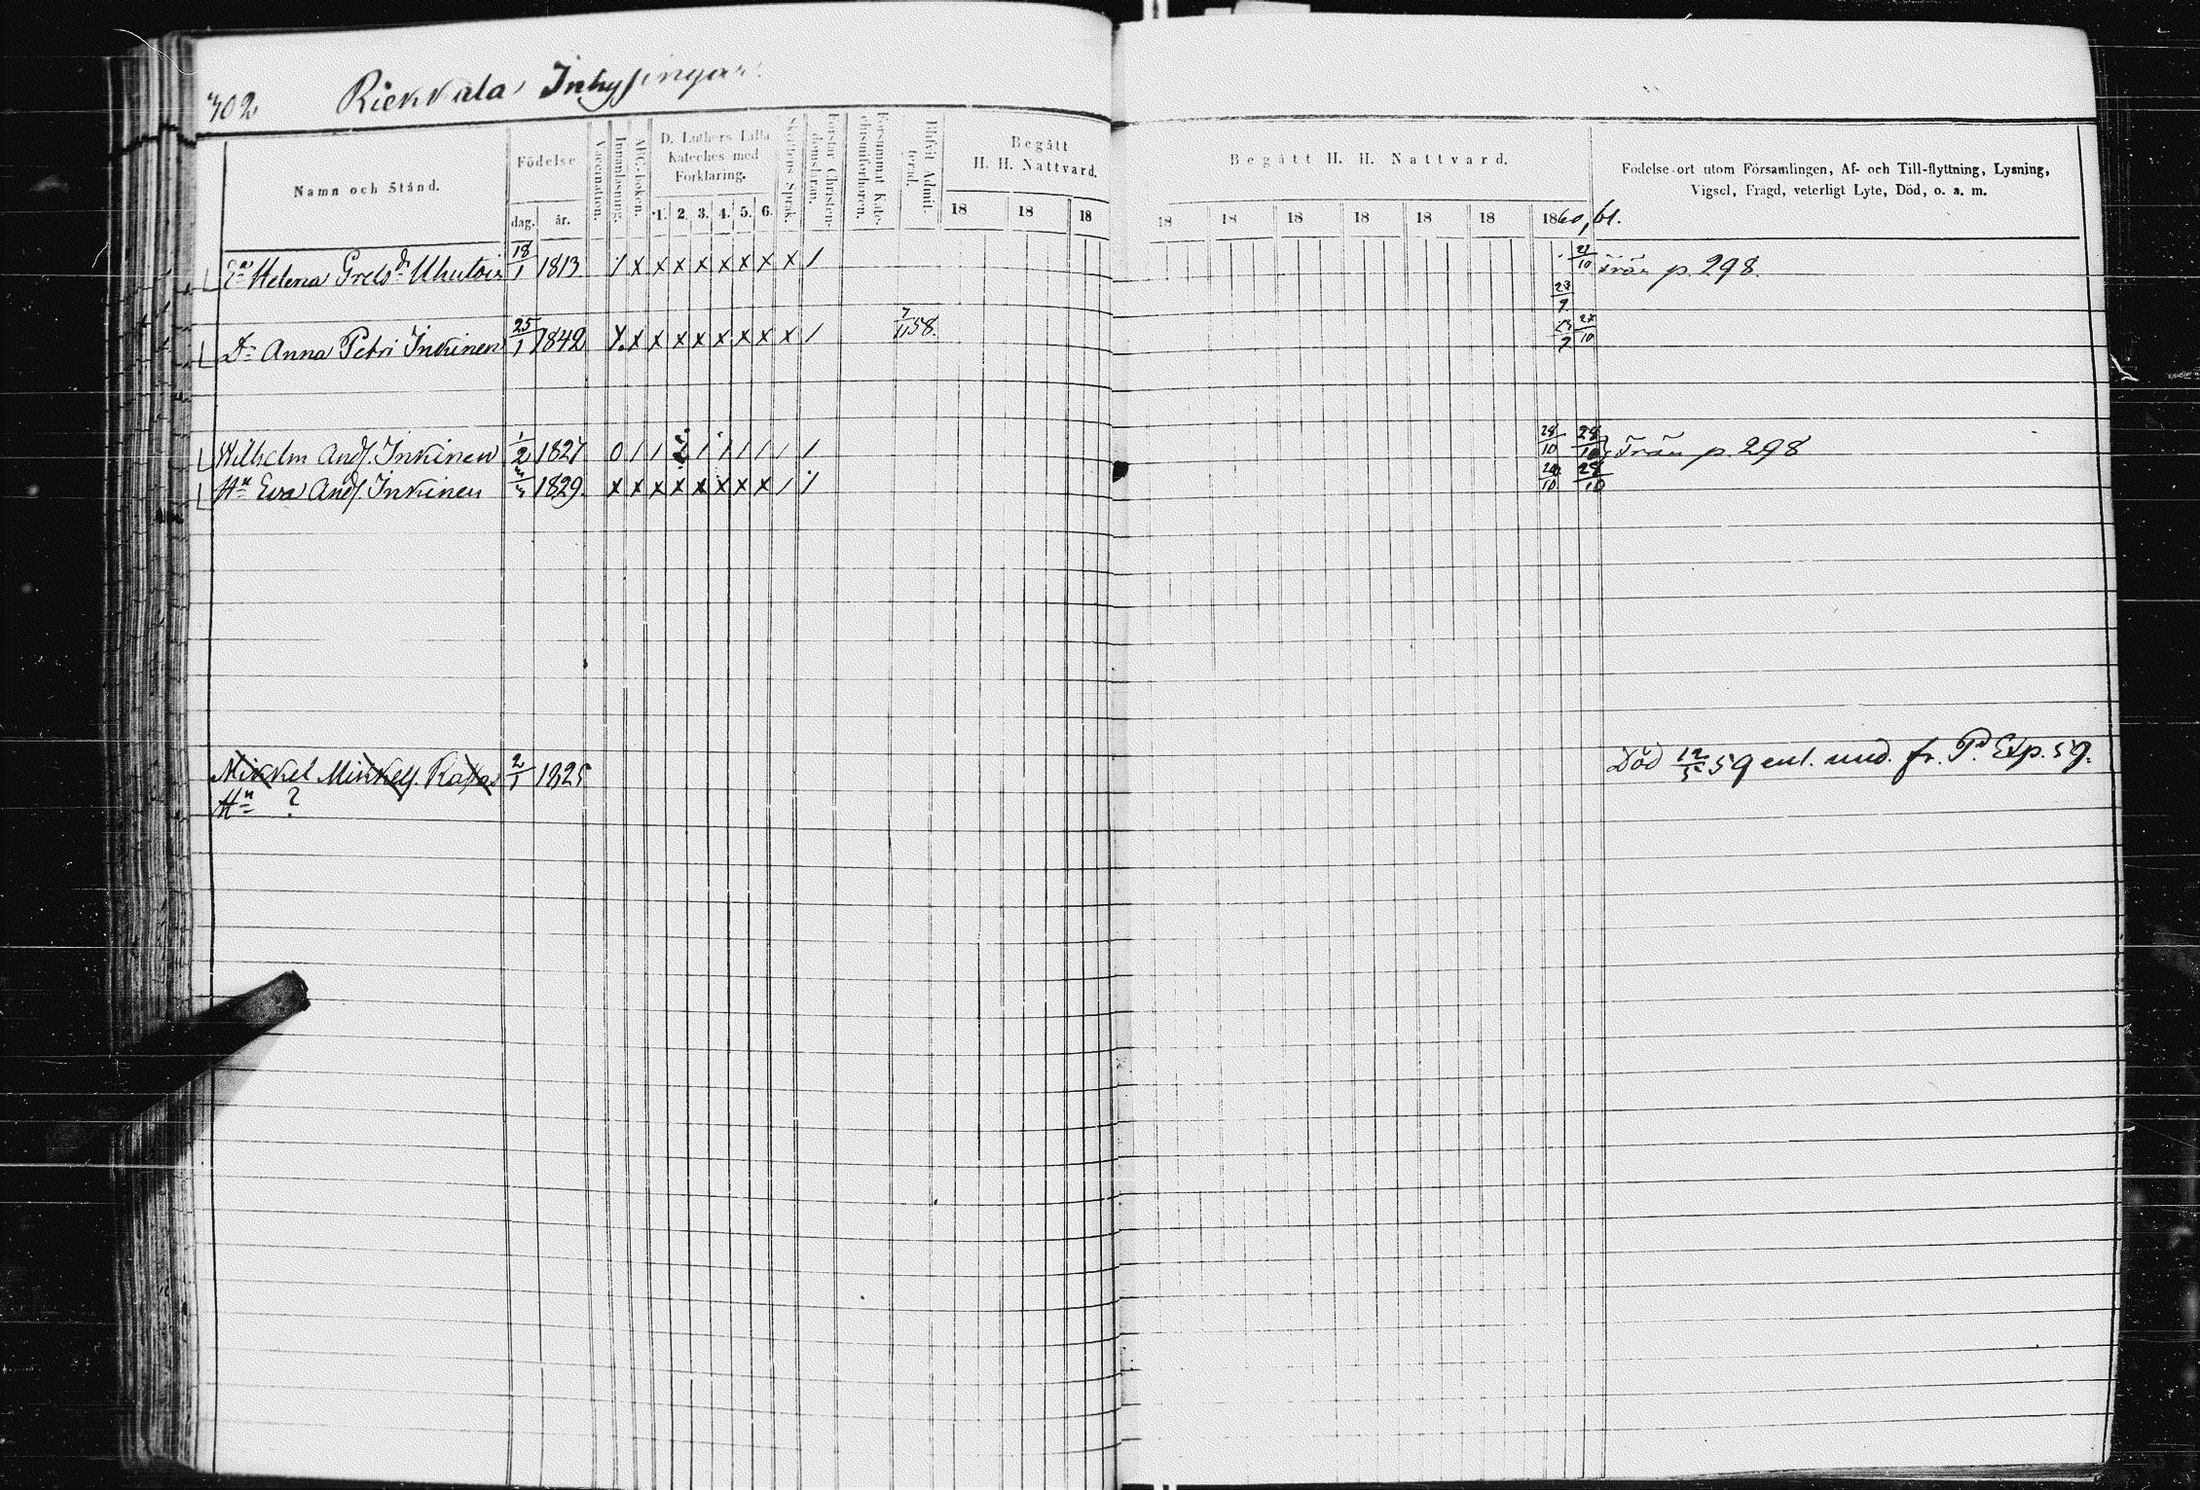 302 Riekkala Inhysingar.
Namn och Stånd.
Födelse
dag. år.
Vaccination.
Innanläsning.
ABC-boken.
D. Luthers Lilla Kateches med Förklaring.
1. 2. 3. 4. 5. 6.
Skriftens Språk.
Förstår Christendomsläran.
Försummat Katechismiförhören.
Blifvit Admitterad.
Begått H. H. Nattvard.
18 18 18
Begått H. H. Nattvard.
18 18 18 18 18 18 1860, 61.
Födelse-ort utom Församlingen, Af- och Till-flyttning, Lysning,
Vigsel, Frägd, veterligt Lyte, Död, o. a. m.
Helena Grels dr Uhutoin 18/1 1813 / x x x x x x x x / 23/9 Från p. 298.
Dr Anna Petri Inkinen 25/1 1842 x x x x x x x x / 58. 23/9 27/10
Wilhelm Andſ. Inkinen 1/2 1827 0 / / / / / / / / 28/10 28/10 Från p. 298
Hu Eva Andſ. Inkinen 1829. x x x x x x x x / / 28/10 28/10
Mikkel Mikkelſ. 2/1 1825 Död 12/5 59 enl. und. fr. Pd Exp. 59.
Hu ?